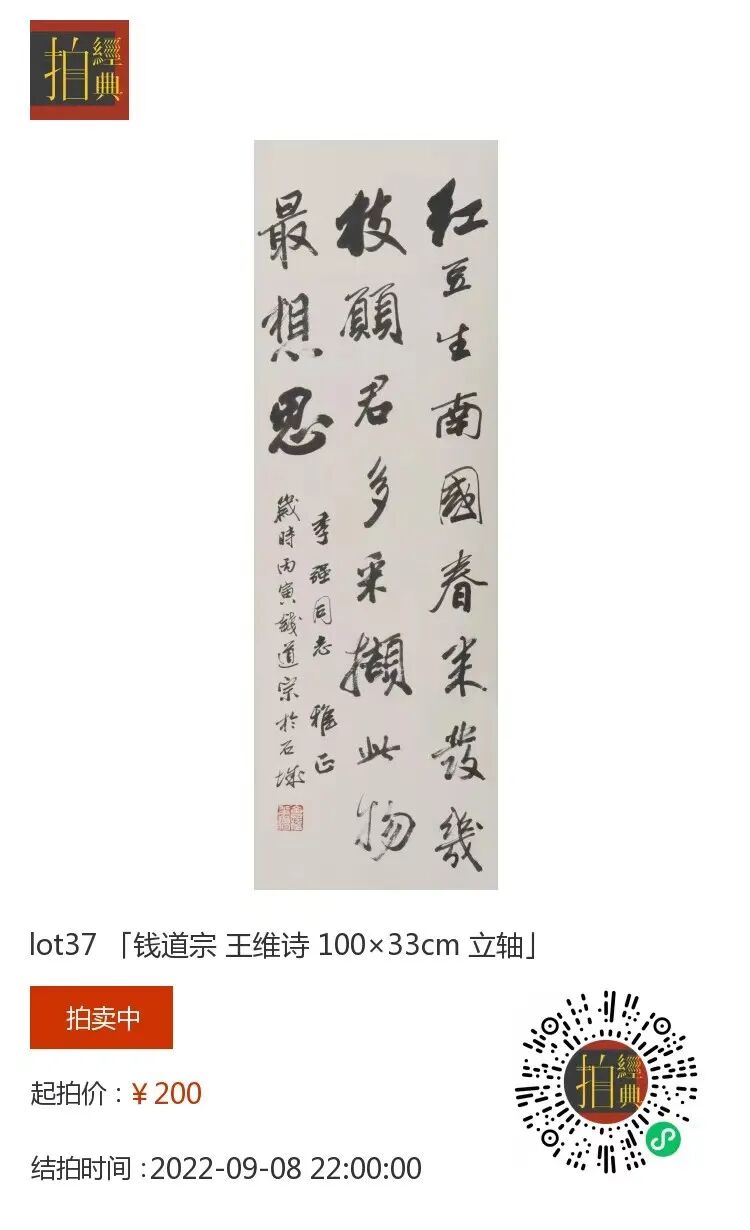 經典
拍
红豆生南國春来發幾
枝願君多采擷此物
最想思
季强同志 雅正
歲時丙寅錢道宗於石城
lot37 「钱道宗 王维诗 100×33cm 立轴」
拍卖中
起拍价：¥ 200
结拍时间：2022-09-08 22:00:00
經典
拍